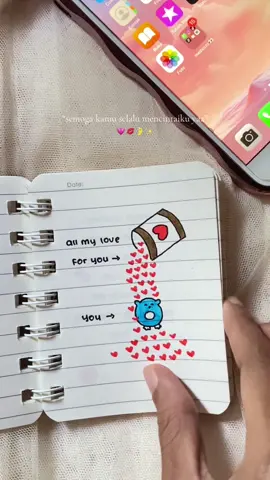 "semoga kamu selalu mencintaiku yaa"
Date:
all my love
for you →
you →